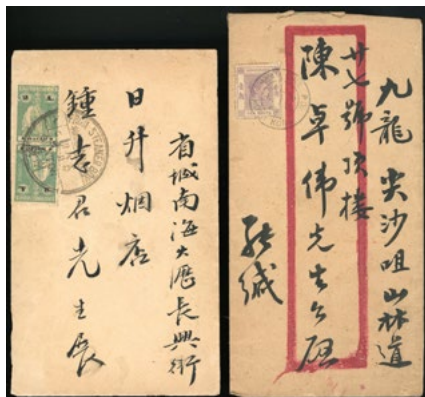 省城南海大瀝長興街
日升烟店
鍾志君先生展
九龍尖沙咀山林道
廿七號頂樓
陳卓偉先生台啟
張緘